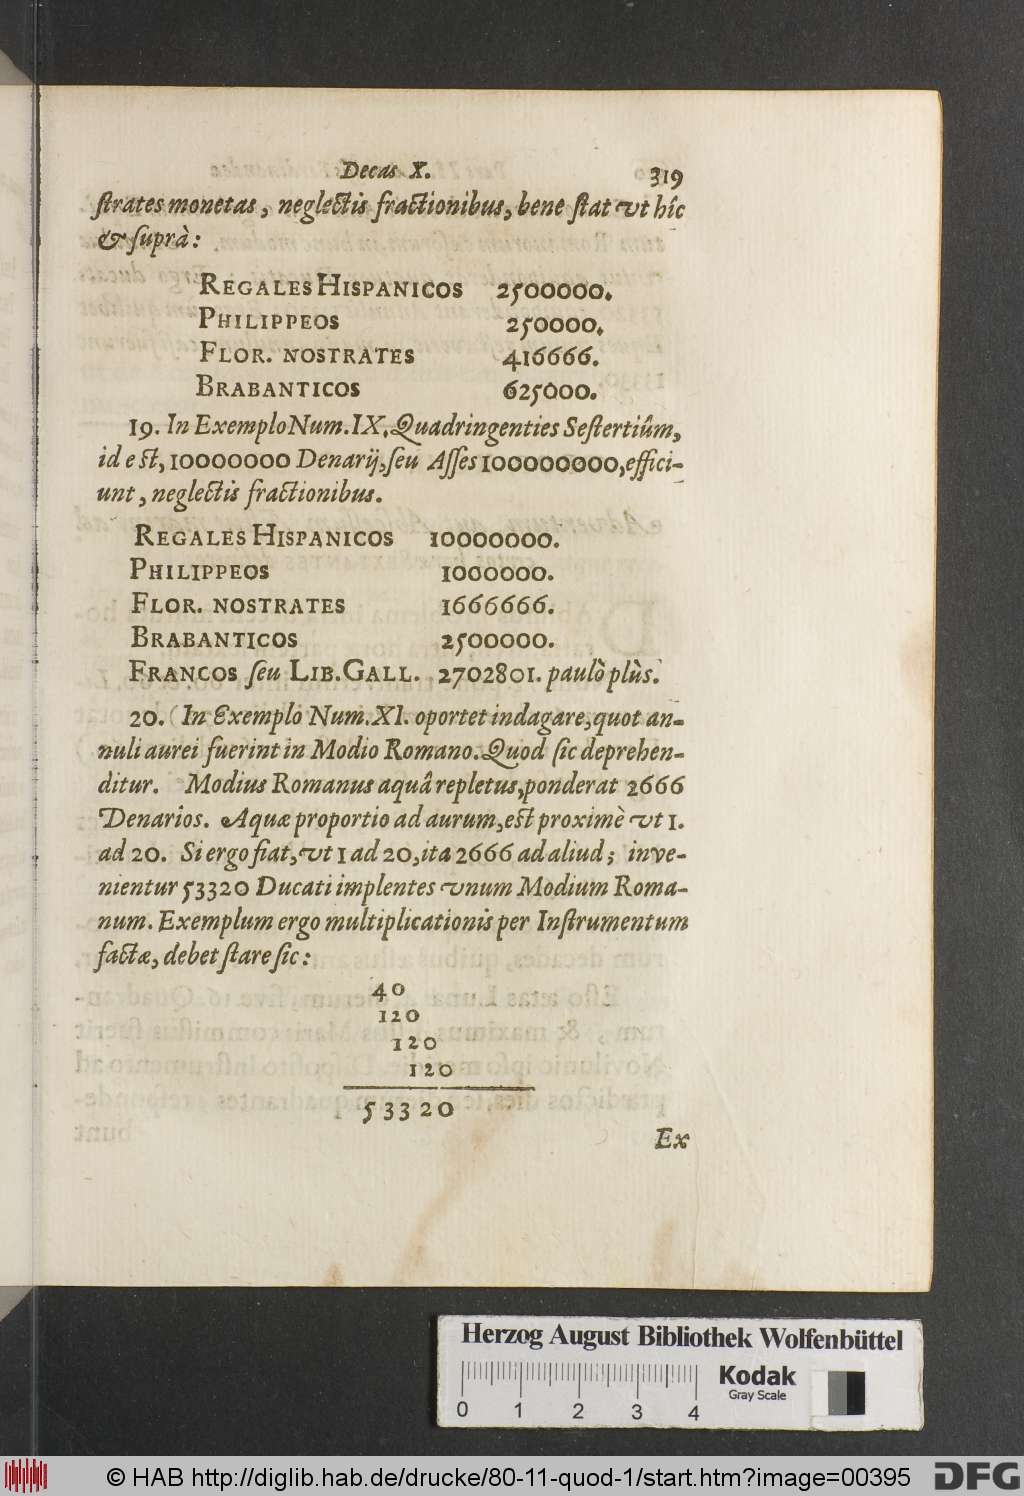 Decas X. 319
ſtrates monetas, neglectis fractionibus, bene ſtat vt hîc
& ſuprà:
REGALES HISPANICOS 2500000.
PHILIPPEOS 250000.
FLOR. NOSTRATES 416666.
BRABANTICOS 625000.
19. In Exemplo Num. IX. Quadringenties Seſtertiûm,
id eſt, 10000000 Denarij, ſeu Aſſes 100000000, effici-
unt, neglectis fractionibus.
REGALES HISPANICOS 10000000.
PHILIPPEOS 1000000.
FLOR. NOSTRATES 1666666.
BRABANTICOS 2500000.
FRANCOS ſeu LIB. GALL. 2702801. paulò plùs.
20. In Exemplo Num. XI. oportet indagare, quot an-
nuli aurei fuerint in Modio Romano. Quod ſic deprehen-
ditur. Modius Romanus aquâ repletus, ponderat 2666
Denarios. Aquæ proportio ad aurum, eſt proximè vt 1.
ad 20. Si ergo fiat, vt 1 ad 20, ita 2666 ad aliud; inve-
nientur 53320 Ducati implentes vnum Modium Roma-
num. Exemplum ergo multiplicationis per Inſtrumentum
factæ, debet ſtare ſic:
40
120
120
120
53320
Ex
Herzog August Bibliothek Wolfenbüttel
Kodak
Gray Scale
0 1 2 3 4
© HAB http://diglib.hab.de/drucke/80-11-quod-1/start.htm?image=00395
DFG